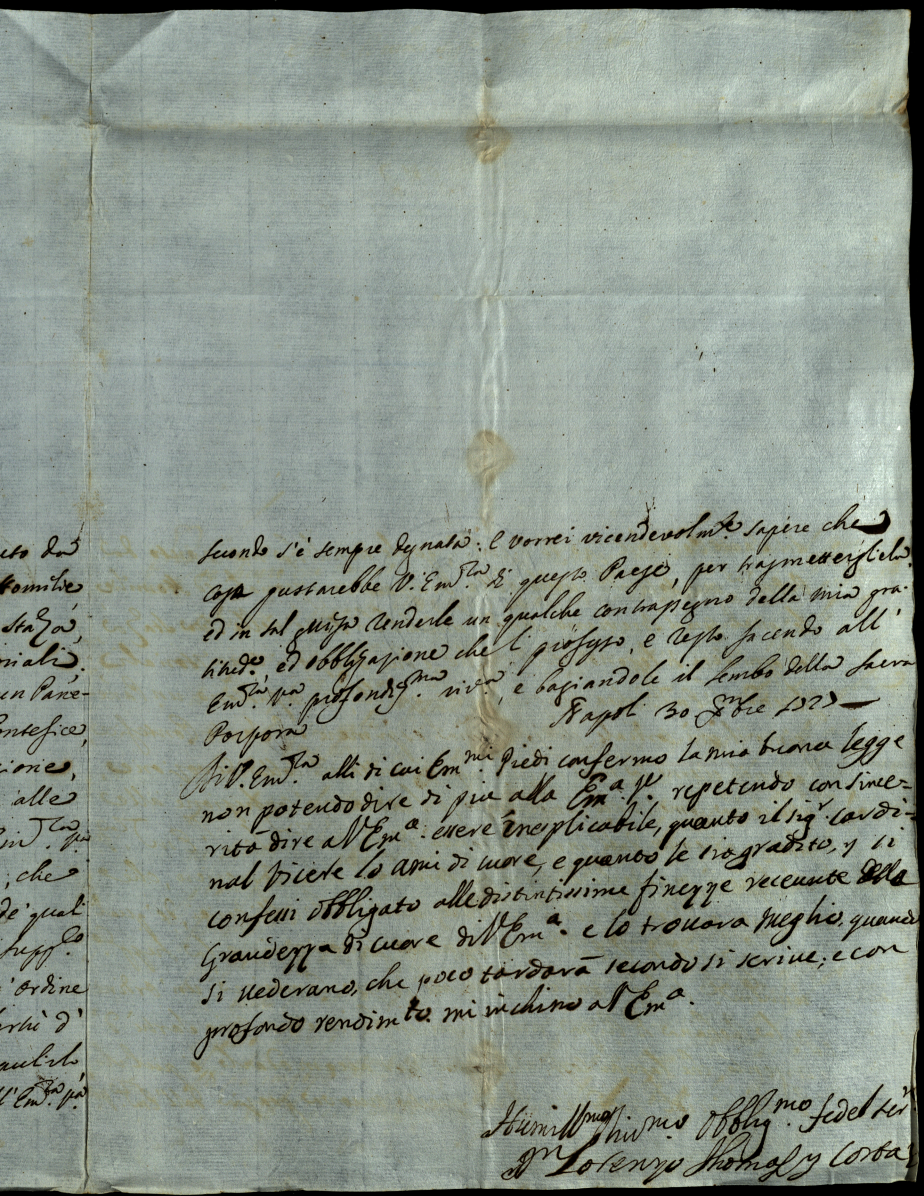 uto da
Homilie
Staza,
niali;
un Pane-
ontefice,
cione,
alle
, che
de' quali
suppl.co
ordine
d'
l' Em.za v.a
secondo s'è sempre degnata: E vorrei vicendevolm.te sapere che
cosa gustarebbe V. Em.za di questo Paese, per trasmettergliela
ed in tal guisa renderle un qualche contrasegno della mia gra-
titud.e, ed obbligazione che l professo, e resto facendo all'
Em.za v.a profondis.ma riv.a, e baciandole il lembo della sacra
Porpora Napoli 30 1727
Di V. Em.za alli di cui Em.mi Piedi confermo la mia buona legge
non potendo dire di piu alla Em.a repetendo con since-
rità dire a V Em.a essere inesplicabile, quanto il sig.r Cardi-
nal Vicere lo ami di cuore, e quanto le sia gradito, y si
confessi obbligato alle distintissime finezze receuute della
Grandezza di cuore di V Em.a. e lo trovara meglio, quando
si vederano, che poco tardarà secondo si scrive; e con
profondo rendim.to mi inchino a V Em.a.
Humill.mo Obblig.mo fedel ser.r
Lorenzo Thomas y Costa